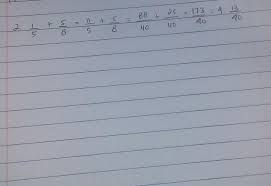 2 1/5 + 5/8 = 11/5 + 5/8 = 88/40 + 25/40 = 173/40 = 4 13/40